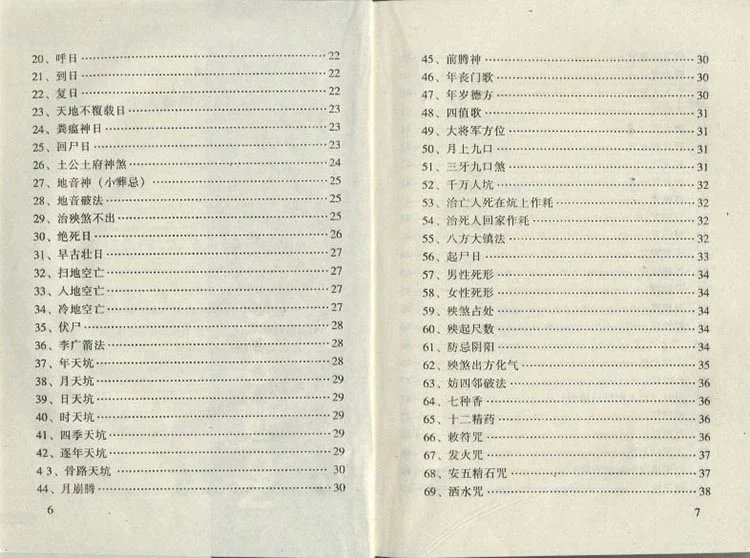 20、呼日……22
21、到日……22
22、复日……22
23、天地不覆载日……23
24、粪瘟神日……23
25、回尸日……23
26、土公土府神煞……24
27、地音神（小葬忌）……25
28、地音破法……25
29、治殃煞不出……25
30、绝死日……26
31、早古壮日……27
32、扫地空亡……27
33、人地空亡……27
34、冷地空亡……27
35、伏尸……28
36、李广箭法……28
37、年天坑……28
38、月天坑……29
39、日天坑……29
40、时天坑……29
41、四季天坑……29
42、逐年天坑……29
43、骨路天坑……30
44、月崩腾……30
6
45、前腾神……30
46、年丧门歌……30
47、年岁德方……30
48、四值歌……31
49、大将军方位……31
50、月上九口……31
51、三牙九口煞……31
52、千万人坑……32
53、治亡人死在炕上作耗……32
54、治死人回家作耗……32
55、八方大镇法……32
56、起尸日……33
57、男性死形……34
58、女性死形……34
59、殃煞占处……34
60、殃起尺数……34
61、防忌阴阳……34
62、殃煞出方化气……35
63、妨四邻破法……36
64、七种香……36
65、十二精药……36
66、敕符咒……36
67、发火咒……37
68、安五精石咒……37
69、洒水咒……38
7